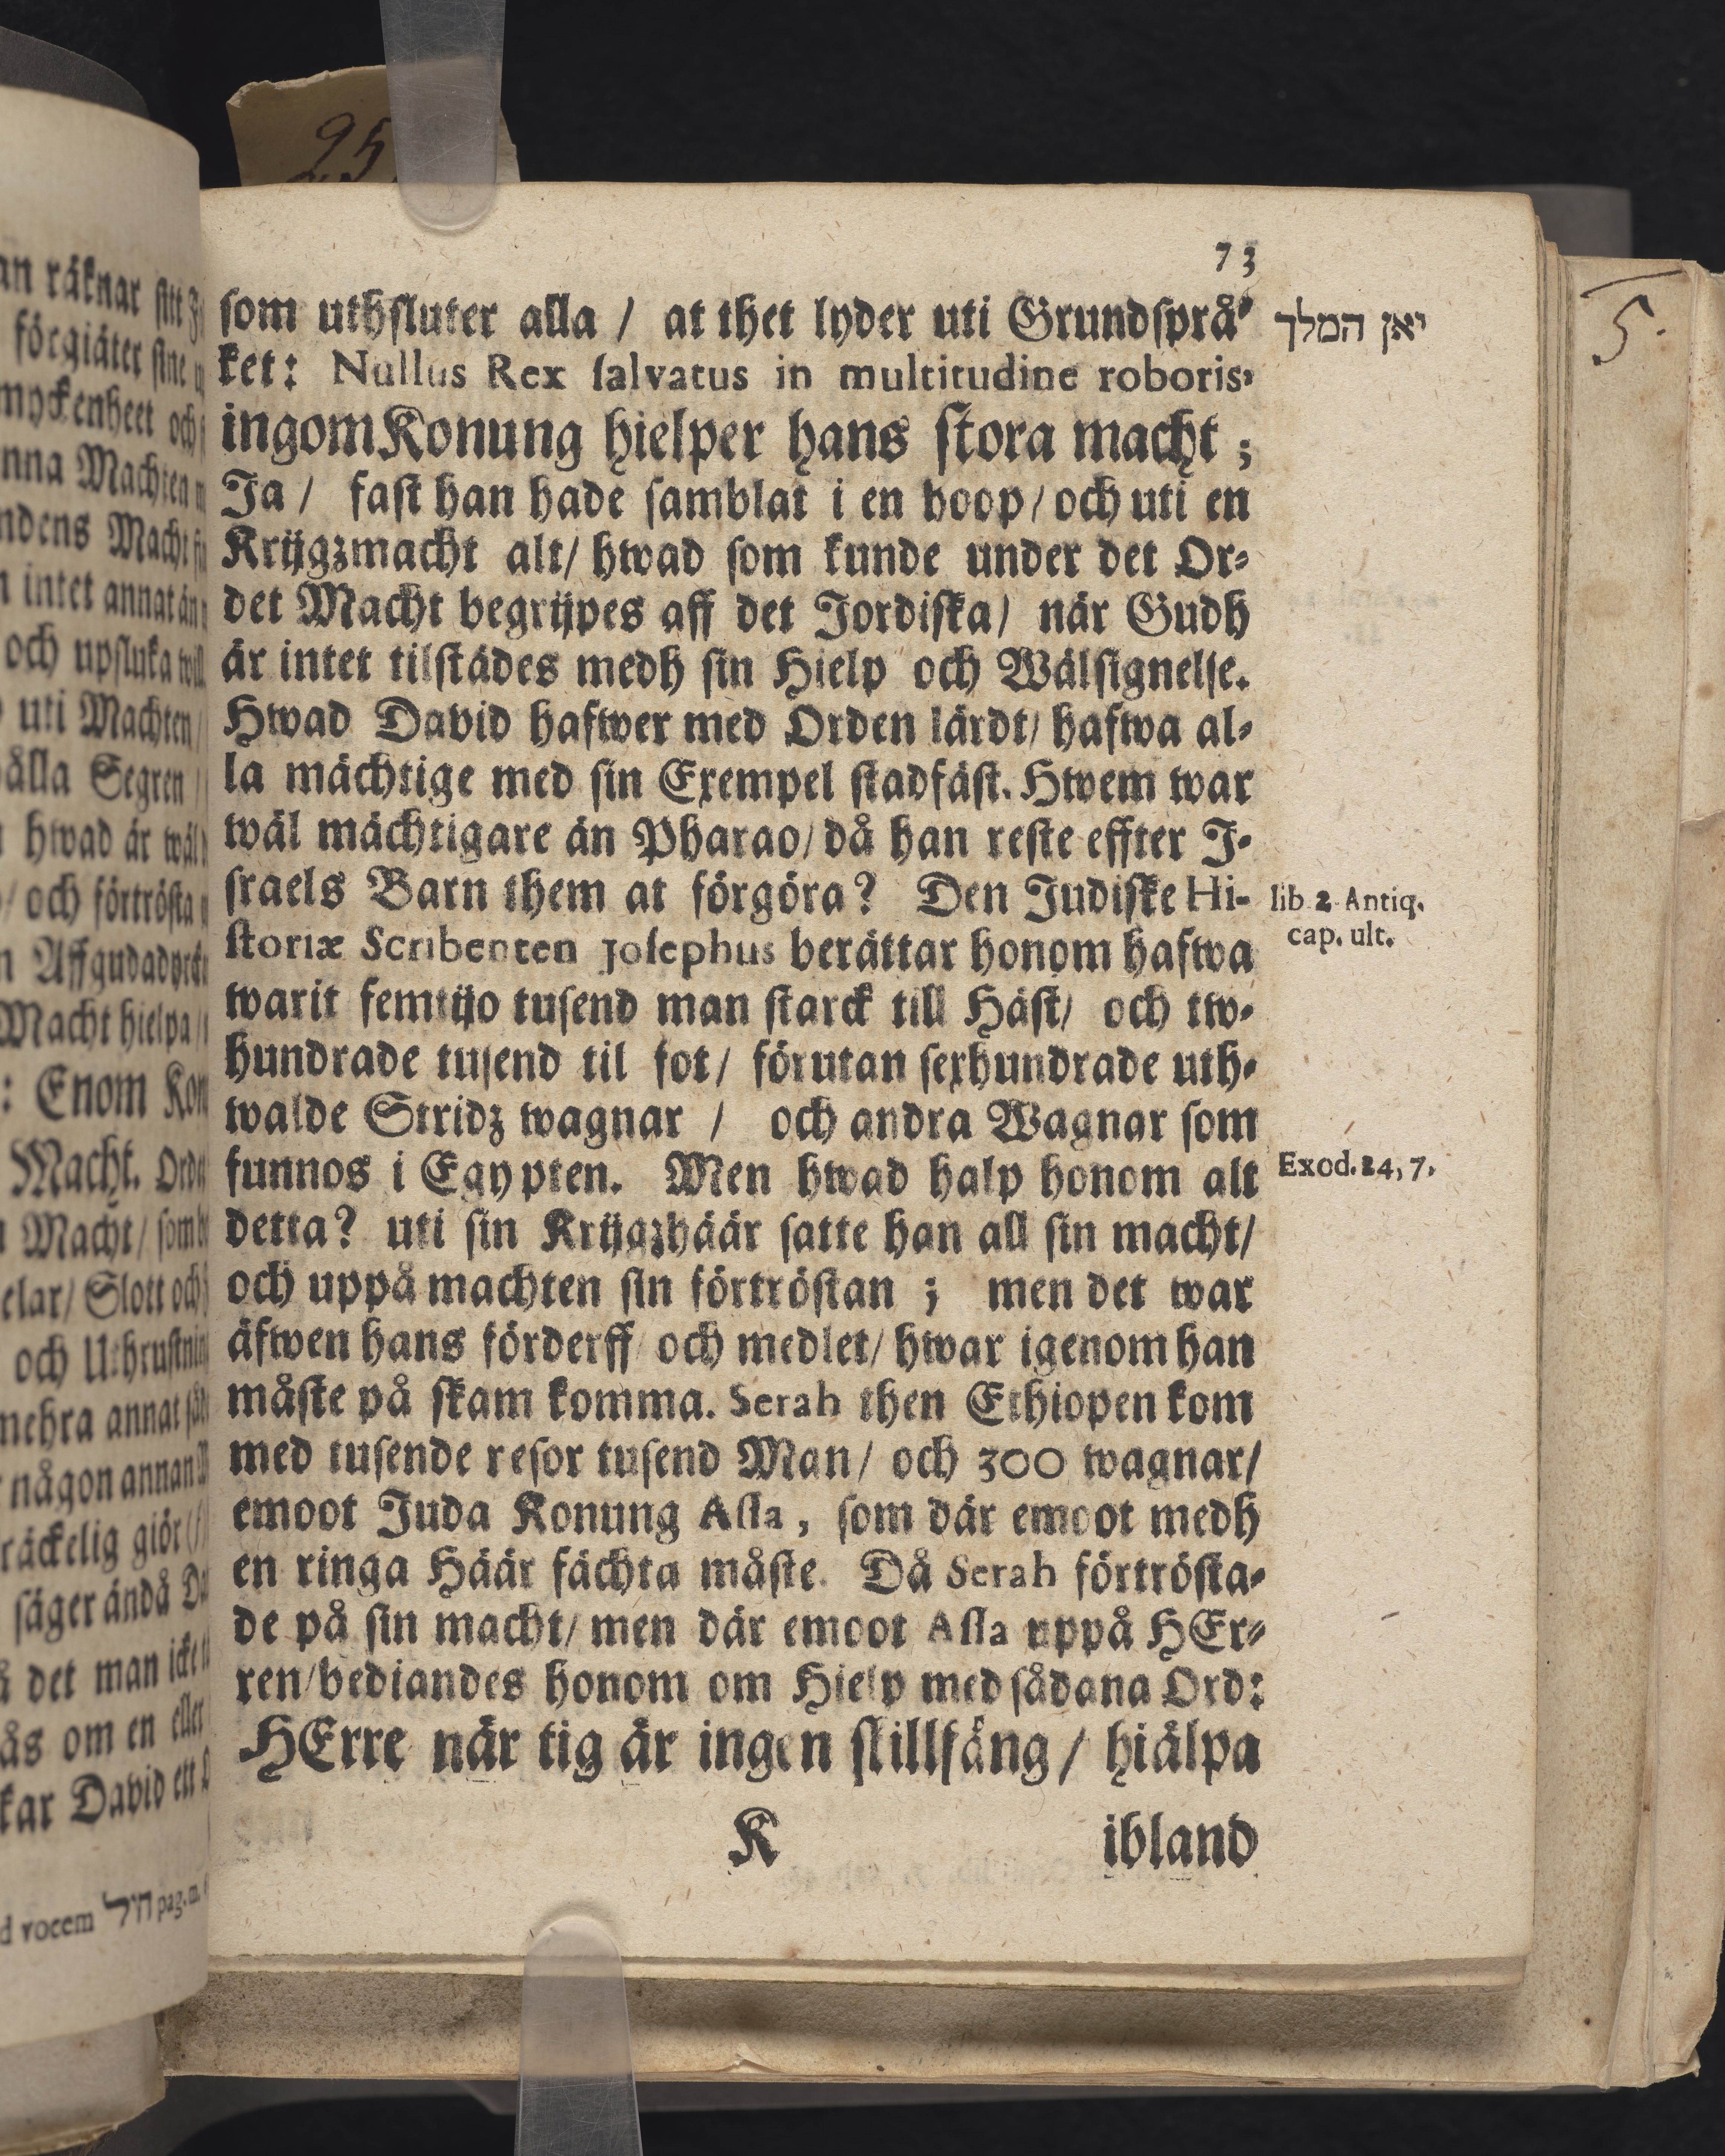 95
73
som uthsluter alla / at thet lyder uti Grundsprå-
ket: Nullus Rex salvatus in multitudine roboris,
ingom Konung hielper hans stora macht ;
Ja / fast han hade samblat i en hoop / och uti en
Krijgzmacht alt / hwad som kunde under det Or-
det Macht begrijpes aff det Jordiska / när Gudh
är intet tilstädes medh sin Hielp och Wälsignelse.
Hwad David hafwer med Orden lärdt / hafwa al-
la mächtige med sin Exempel stadfäst. Hwem war
wäl mächtigare än Pharao / då han reste effter I-
sraels Barn them at förgöra? Den Judiske Hi-
storiæ Scribenten Josephus berättar honom hafwa
warit femtijo tusend man starck till Häst / och tw-
hundrade tusend til fot / förutan sexhundrade uth-
walde Stridz wagnar / och andra Wagnar som
funnos i Egypten. Men hwad halp honom alt
detta? uti sin Krijgzhäär satte han all sin macht /
och uppå machten sin förtröstan ; men det war
äfwen hans förderff och medlet / hwar igenom han
måste på skam komma. Serah then Ethiopen kom
med tusende resor tusend Man / och 300 wagnar /
emoot Juda Konung Assa, som där emoot medh
en ringa Häär fächta måste. Då Serah förtrösta-
de på sin macht / men där emoot Assa uppå HEr-
ren / bediandes honom om Hielp med sådana Ord:
HErre när tig är ingen skillfäng / hiälpa
K ibland
יאן המלך
lib 2 Antiq.
cap. ult.
Exod. 24, 7.
5.
an räknar sitt
förgiäter sine
myckenheet och
nna Machten
ndens Macht
intet annat än
och upsluka
uti Machten /
ålla Segren /
hwad är wäl
/ och förtrösta
Affgudadyrk
Macht hielpa /
: Enom Kon
Macht. Ord
Macht / som
elar / Slott och
och Uthrustnin
mehra annat
någon annan
räckelig giör
säger ändå
det man icke
ås om en eller
kar David ett
d vocem חיל pag. m.